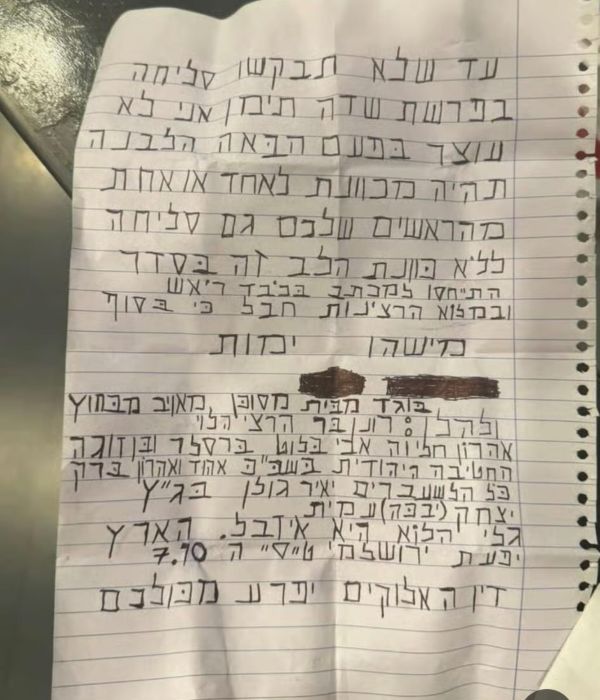 עד שלא תבקשו סליחה
בפרשת שדה תימן אני לא
עוצר בפעם הבאה הלבנה
תהיה מכוונת לאחד או אחת
מהראשים שלכם גם סליחה
ללא כוונת הלב זה בסדר
התייחסו למכתב בכובד ראש
ובמלוא הרצינות חבל כי בסוף
מישהו ימות
בוגד מבית מסוכן מאויב מבחוץ
ולהלן: רונן בר הרצי הלוי
אהרון חליוה אבי בלוט ברסלר ובן זוגה
החטיבה היהודית בשב"כ אהוד ואהרון ברק
כל הלשעברים יאיר גולן בג"ץ
יצחק (יבבה) עמית
גלי הלוא היא איזבל. הארץ
יפעת ירושלמי ט"ס ה 7.10
דין האלוקים יפרע מכולכם